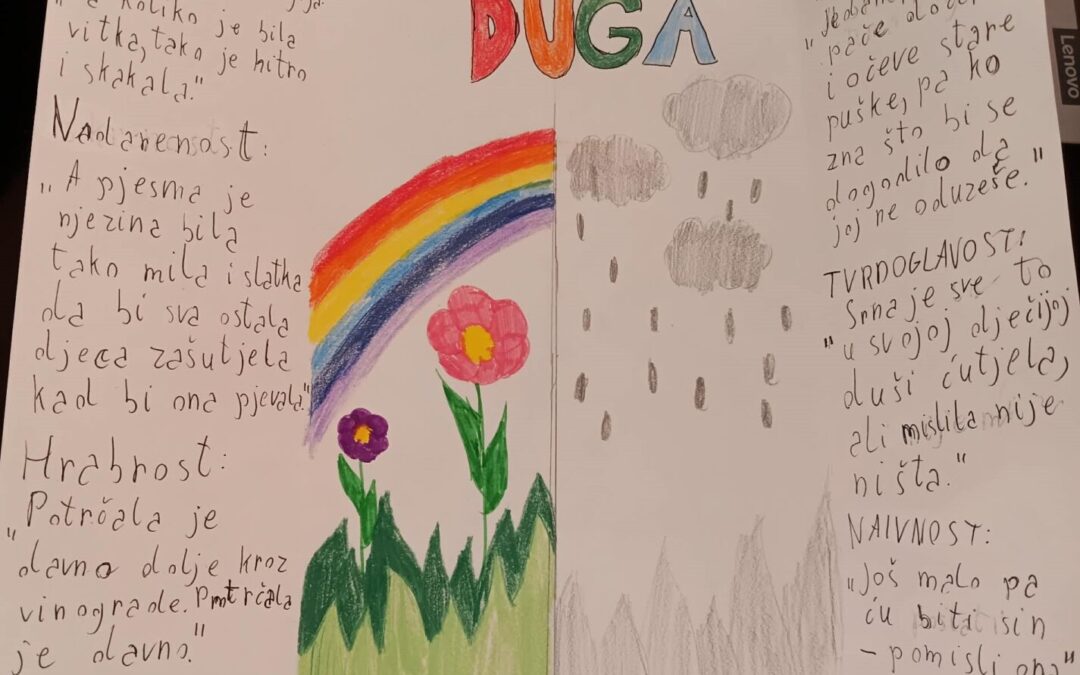 koliko je bila
vitka, tako je hitro
i skakala."
Nadarenost:
"A pjesma je
njezina bila
tako mila i slatka
da bi sva ostala
djeca zašutjela
kad bi ona pjevala."
Hrabrost:
"Potrčala je
davno dolje kroz
vinograde. Potrčala
je davno."
DUGA
pače
i očeve stare
puške, pa ko
zna što bi se
dogodilo da
joj ne oduzeše."
TVRDOGLAVOST:
Srna je sve to
"u svojoj dječijoj
duši ćutjela,
ali mislila nije
ništa."
NAIVNOST:
"Još malo pa
ću biti sin
- pomisli ona"
Lenovo